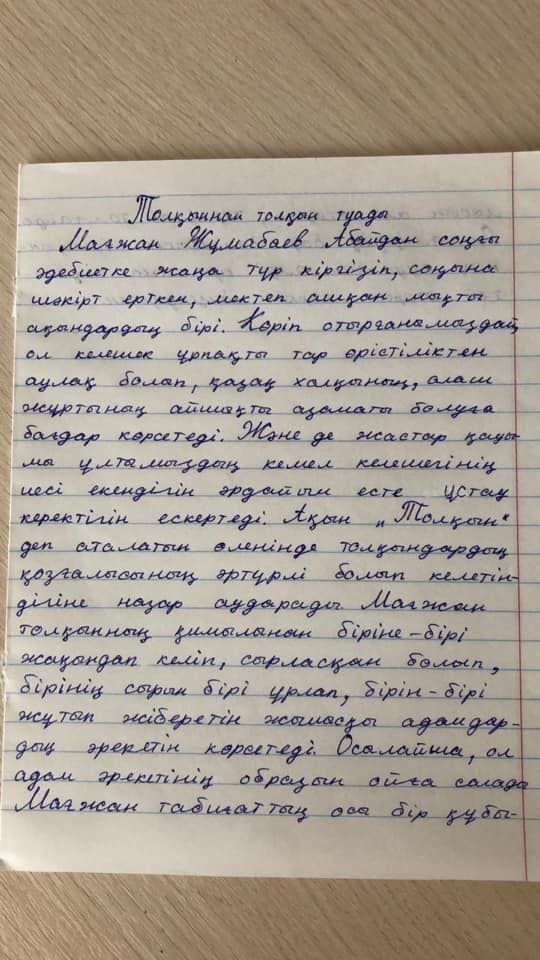 Толқыннан толқын туады
Мағжан Жұмабаев Абайдан соңғы
әдебиетке жаңа түр кіргізіп, соңына
шәкірт ерткен, мектеп ашқан мықты
ақындардың бірі. Көріп отырғанымыздай,
ол келешек ұрпақты тар өрістіліктен
аулақ болып, қазақ халқының, алаш
жұртының айшықты азаматы болуға
бағдар көрсетеді. Және де жастар қауы-
мы ұлтымыздың кемел келешегінің
иесі екендігін әрдайым есте ұстау
керектігін ескертеді. Ақын „Толқын"
деп аталатын өленінде толқындардың
қозғалысының әртүрлі болып келетін-
дігіне назар аударады. Мағжан
толқынның қимылынан біріне-бірі
жақындап келіп, сырласқан болып,
бірінің сырын бірі ұрлап, бірін-бірі
жұтып жіберетін жымысқы адамдар-
дың әрекетін көрсетеді. Осылайша, ол
адам әрекетінің образын ойға салады
Мағжан табиғаттың осы бір құбы-